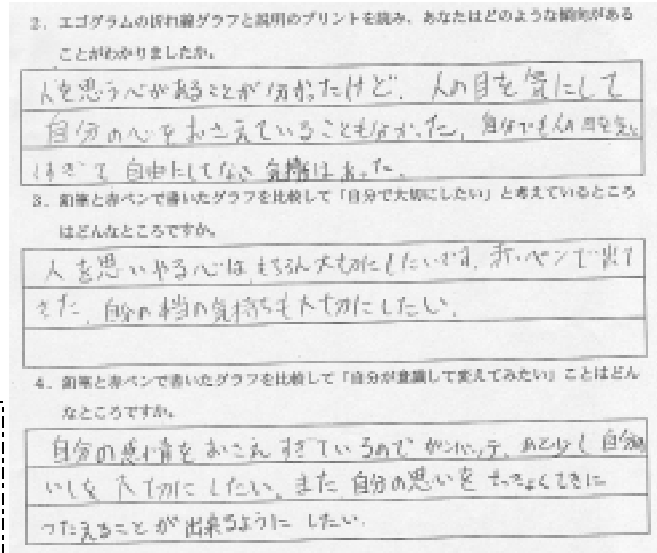 2. エゴグラムの折れ線グラフと説明のプリントを読み、あなたはどのような傾向がある
ことがわかりましたか。
人を思う心があることが分かったけど、人の目を気にして
自分の心をおさえていることも分かった。自分でも人の目を気に
しすぎて自由にしてない気持はあった。
3. 鉛筆と赤ペンで書いたグラフを比較して「自分で大切にしたい」と考えているところ
はどんなところですか。
人を思いやる心はもちろん大切にしたいです。赤いペンで出て
きた、自分の本当の気持ちも大切にしたい。
4. 鉛筆と赤ペンで書いたグラフを比較して「自分が意識して変えてみたい」ことはどん
なところですか。
自分の感情をおさえすぎているので あと少し自分の
いしを大切にしたい。また自分の思いをせっきょくてきに
つたえることが出来るようにしたい。